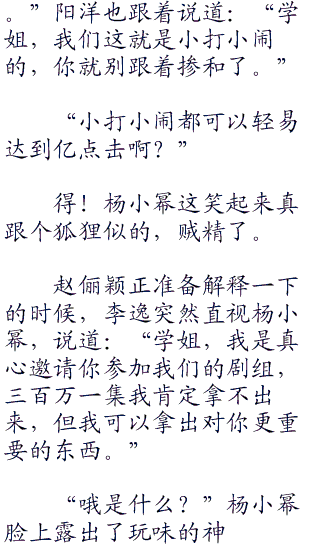 。”阳洋也跟着说道：“学
姐，我们这就是小打小闹
的，你就别跟着掺和了。”
“小打小闹都可以轻易
达到亿点击啊？”
得！杨小幂这笑起来真
跟个狐狸似的，贼精了。
赵俪颖正准备解释一下
的时候，李逸突然直视杨小
幂，说道：“学姐，我是真
心邀请你参加我们的剧组，
三百万一集我肯定拿不出
来，但我可以拿出对你更重
要的东西。”
“哦是什么？”杨小幂
脸上露出了玩味的神